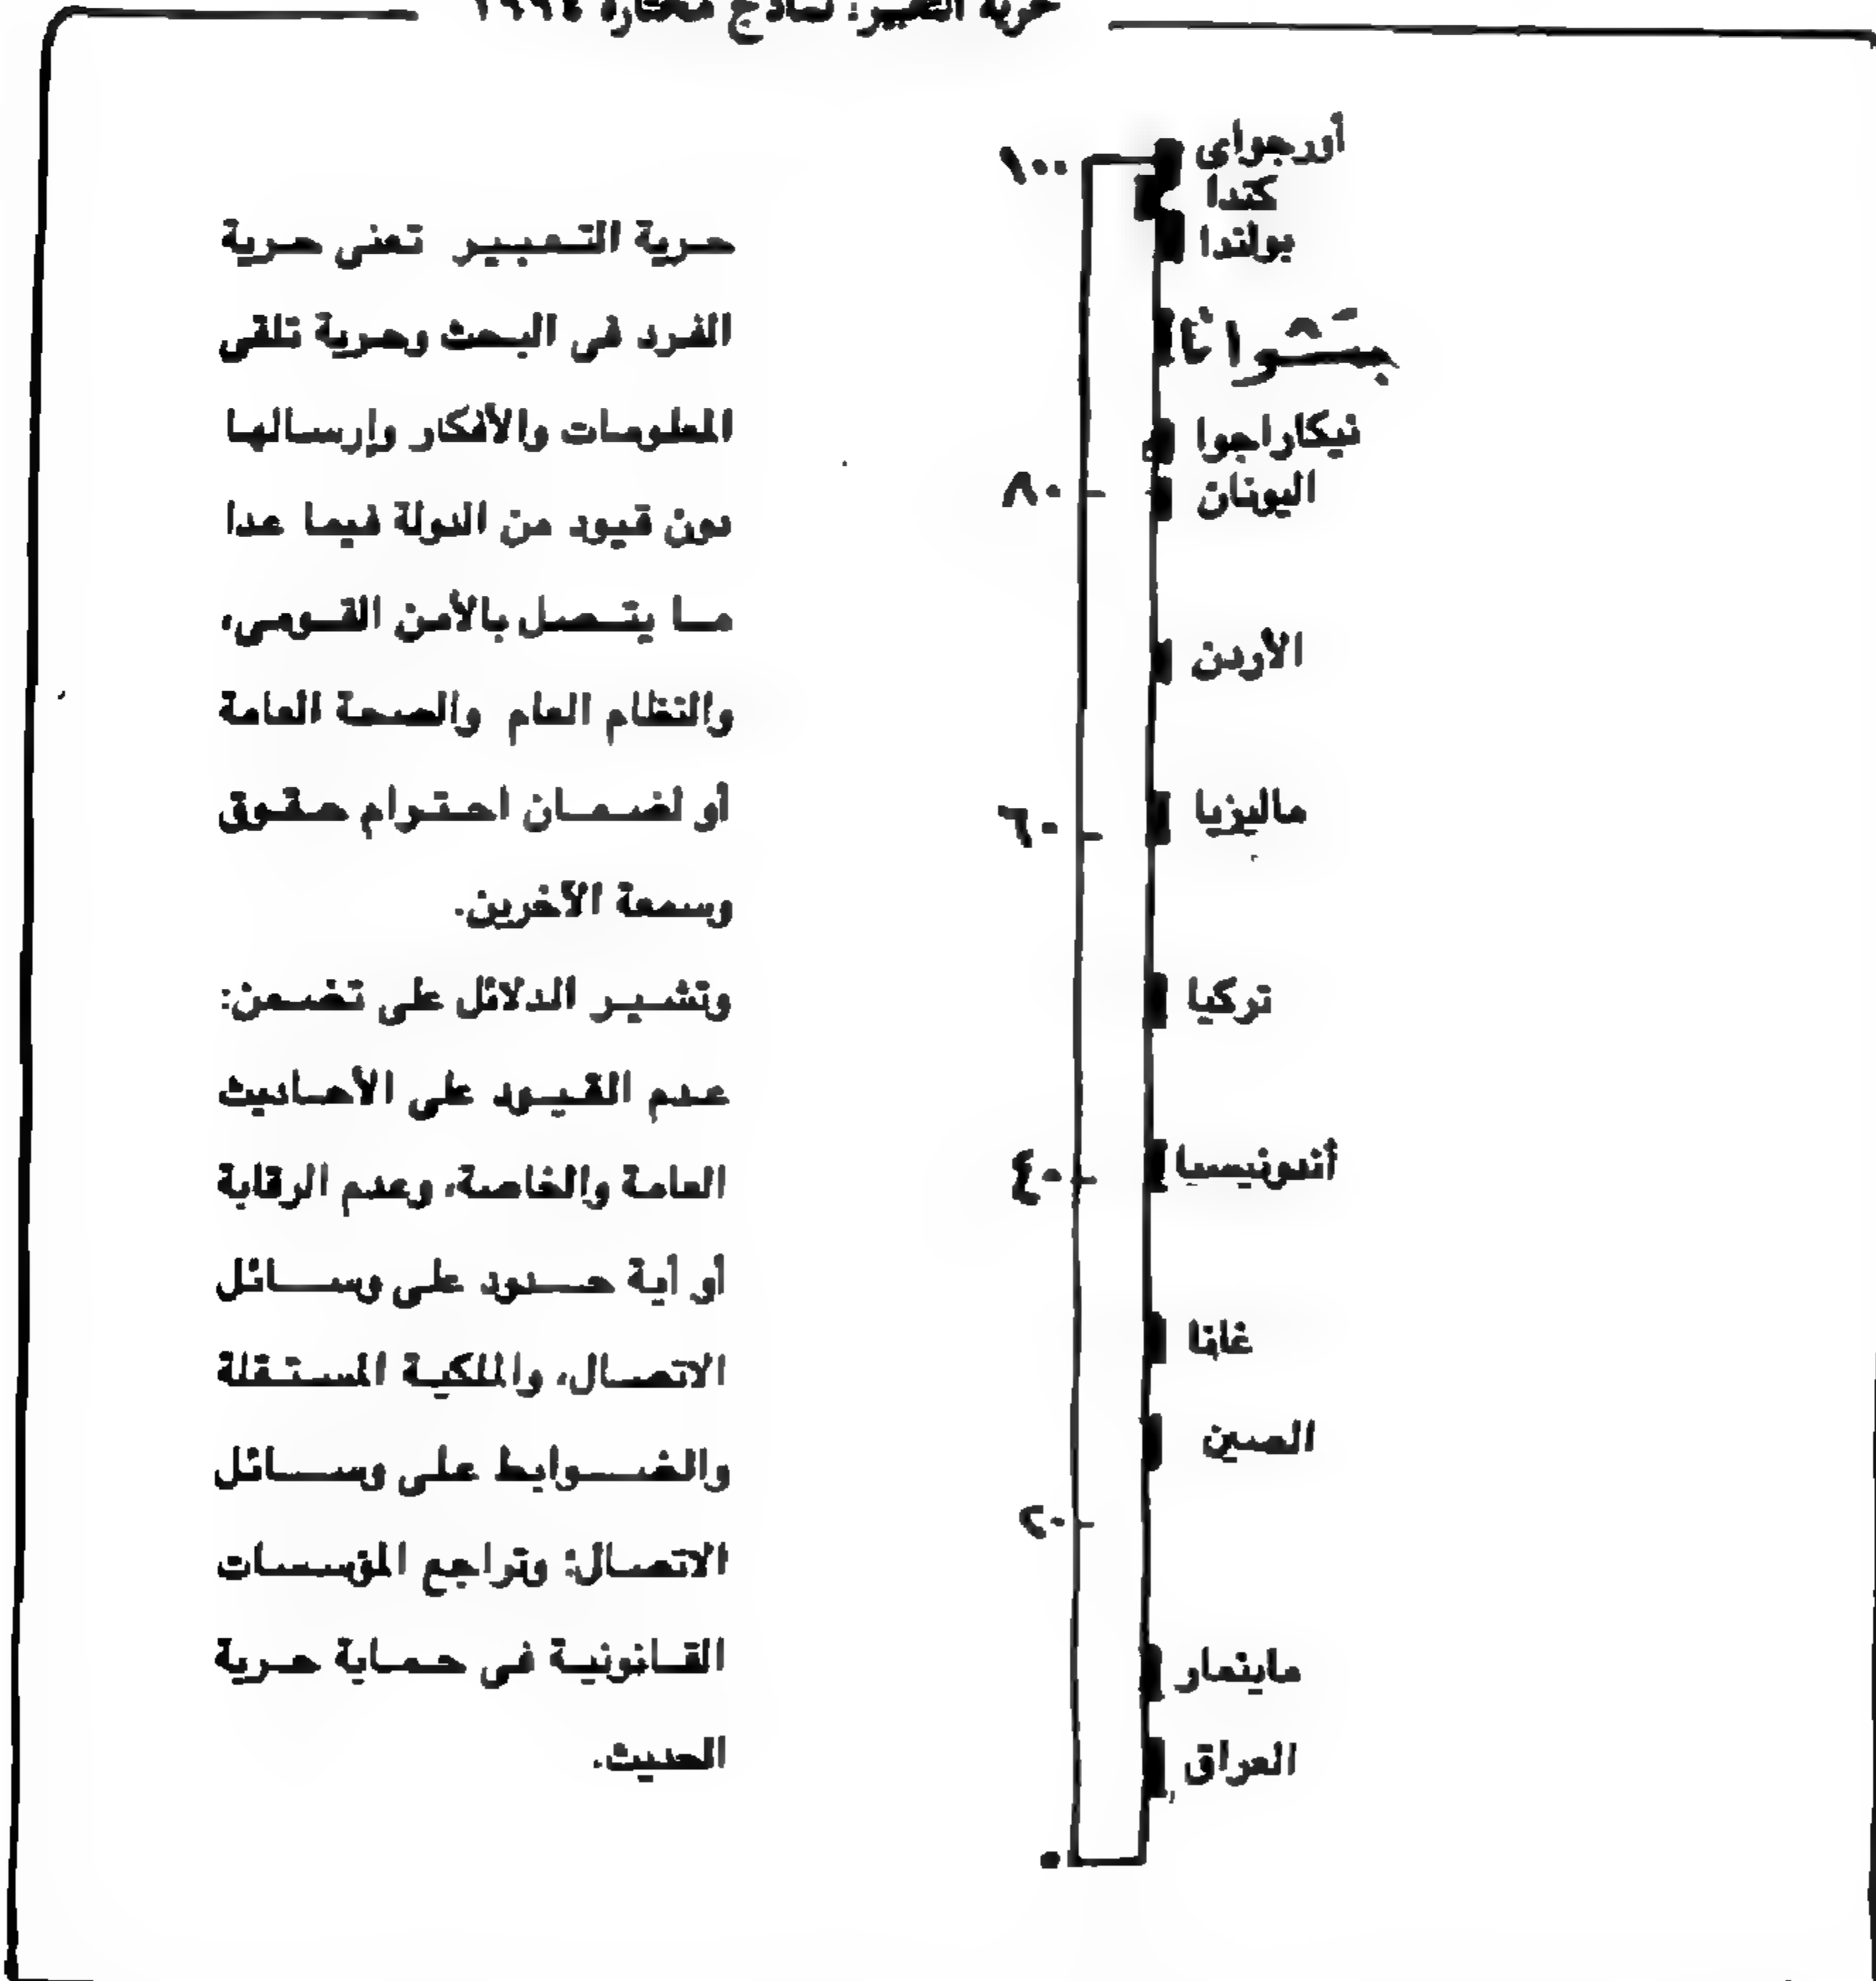 حرية التعبير: نماذج مختارة ١٩٩٤
١٠٠
أورجواى
كندا
بولندا
بتسوانا
نيكاراجوا
٨٠
اليونان
الأردن
ماليزيا
٦٠
تركيا
أندونيسيا
٤٠
غانا
الصين
٢٠
ماينمار
العراق
٠
حرية التعبير تعنى حرية
الفرد فى البحث وحرية تلقى
المعلومات والأفكار وإرسالها
دون قيود من الدولة فيما عدا
ما يتصل بالأمن القومى،
والنظام العام والصحة العامة
أو لضمان احترام حقوق
وسمعة الآخرين.
وتشير الدلائل على تضمن:
عدم القيود على الأحاديث
العامة والخاصة، وعدم الرقابة
أو أية حدود على وسائل
الاتصال، والملكية المستقلة
والضوابط على وسائل
الاتصال: وتراجع المؤسسات
القانونية فى حماية حرية
الحديث.